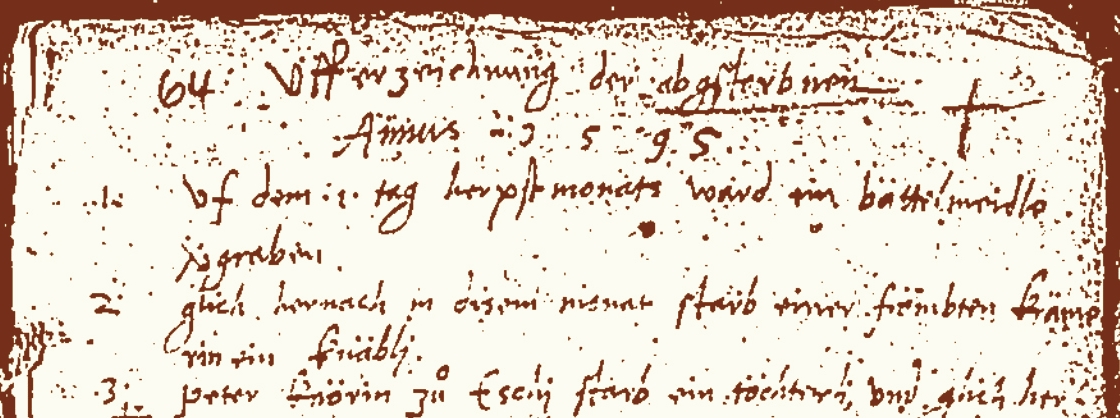 64. Vfferzeichnung der abgsterbnen
Annus 1 5 9 5.
.1. Vf dem .1. tag herpstmonats ward ein bättelmeidle
vgraben.
2. glich hernach in disem monat starb einer frömbten kräme
rin ein knäbli.
.3. peter zů Esch starb ein töchterli, vnd glich her